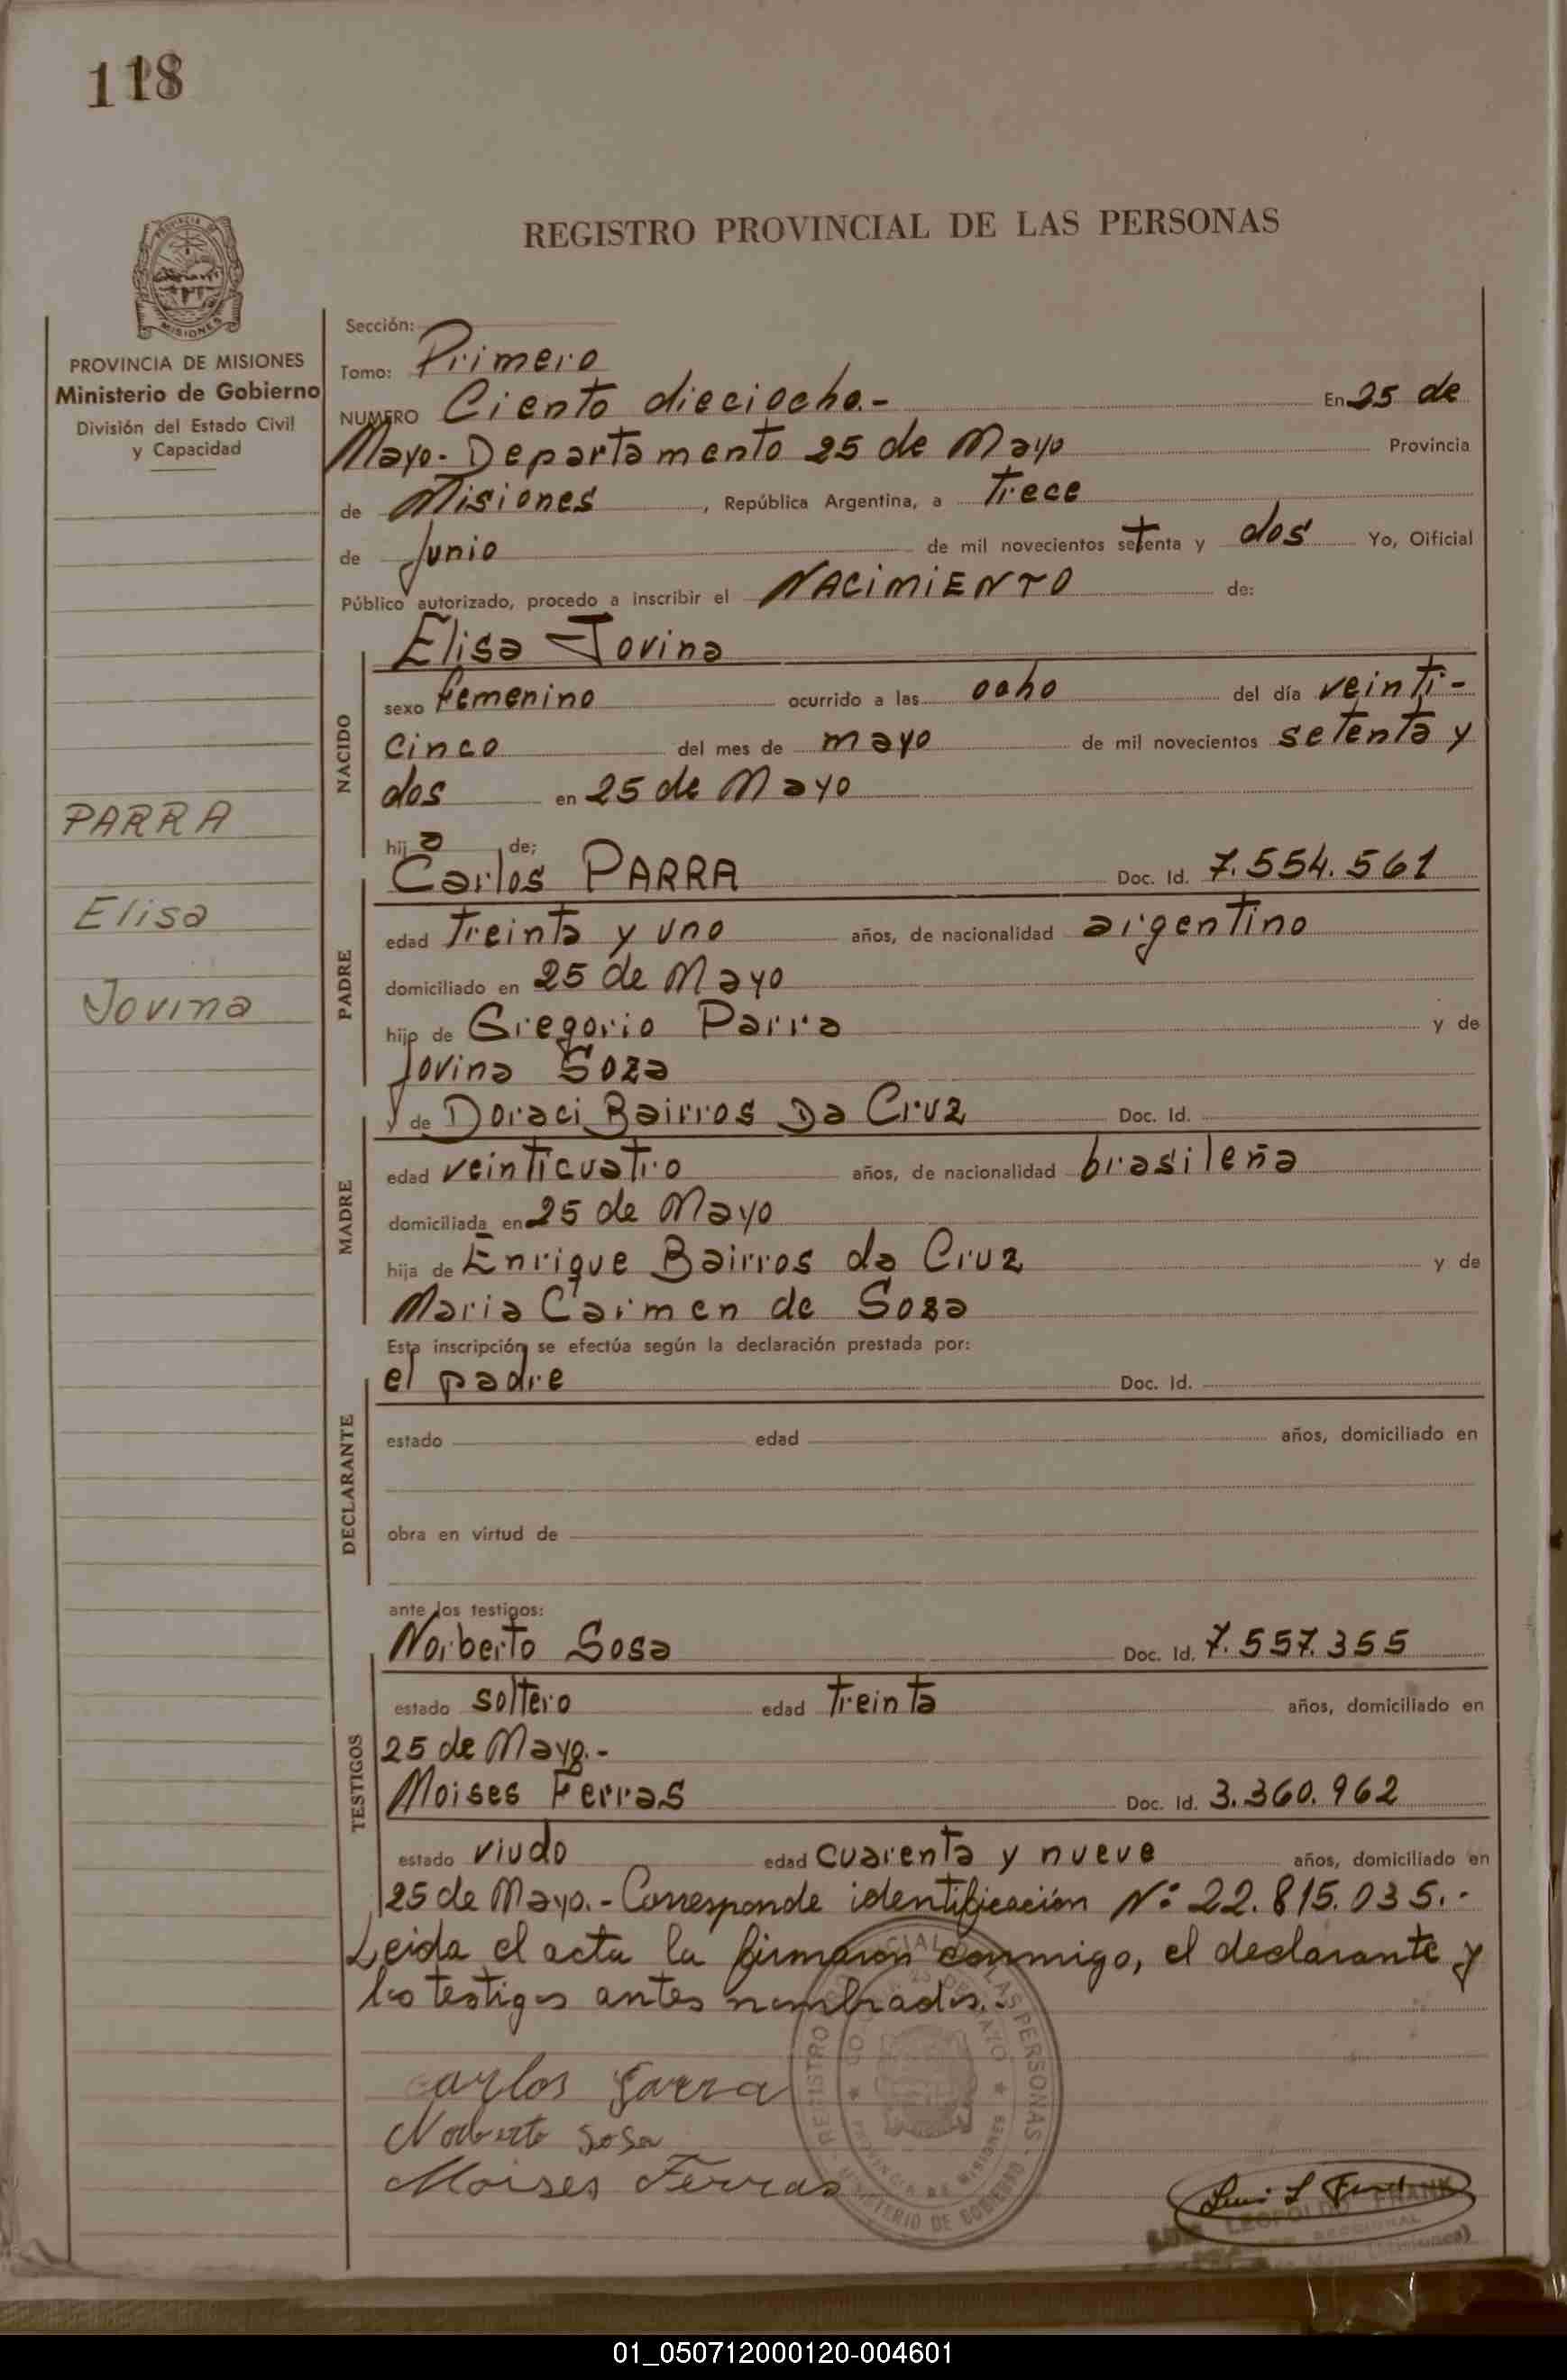 118
REGISTRO PROVINCIAL DE LAS PERSONAS
PROVINCIA DE MISIONES
Ministerio de Gobierno
División del Estado Civil
y Capacidad
PARRA
Elisa
Jovina
Sección:
Tomo: Primero
NUMERO Ciento dieciocho.- En 25 de
Mayo - Departamento 25 de Mayo Provincia
de Misiones, República Argentina, a Trece
de Junio de mil novecientos setenta y dos Yo, Oificial
Público autorizado, procedo a inscribir el NACIMIENTO de:
Elisa Jovina
NACIDO
sexo femenino ocurrido a las ocho del día veinti-
cinco del mes de mayo de mil novecientos setenta y
dos en 25 de Mayo
hija de;
Carlos PARRA Doc. Id. 7.554.561
PADRE
edad treinta y uno años, de nacionalidad argentino
domiciliado en 25 de Mayo
hijo de Gregorio Parra y de
Jovina Soza
y de Doraci Bairros Da Cruz Doc. Id.
MADRE
edad veinticuatro años, de nacionalidad brasileña
domiciliada en 25 de Mayo
hija de Enrique Bairros da Cruz y de
Maria Carmen de Soza
Esta inscripción se efectúa según la declaración prestada por:
el padre Doc. Id.
DECLARANTE
estado edad años, domiciliado en
obra en virtud de
ante los testigos:
Norberto Sosa Doc. Id. 7.557.355
TESTIGOS
estado soltero edad treinta años, domiciliado en
25 de Mayo.-
Moises Ferras Doc. Id. 3.360.962
estado viudo edad cuarenta y nueve años, domiciliado en
25 de Mayo.- Corresponde identificación Nº 22.815.035.-
Leida el acta la firmaron conmigo, el declarante y
los testigos antes nombrados.-
Carlos Parra
Norberto Sosa
Moises Ferras
REGISTRO PROVINCIAL DE LAS PERSONAS
PROVINCIA DE MISIONES
MINISTERIO DE GOBIERNO
LEOPOLDO FRANK
01_050712000120-004601